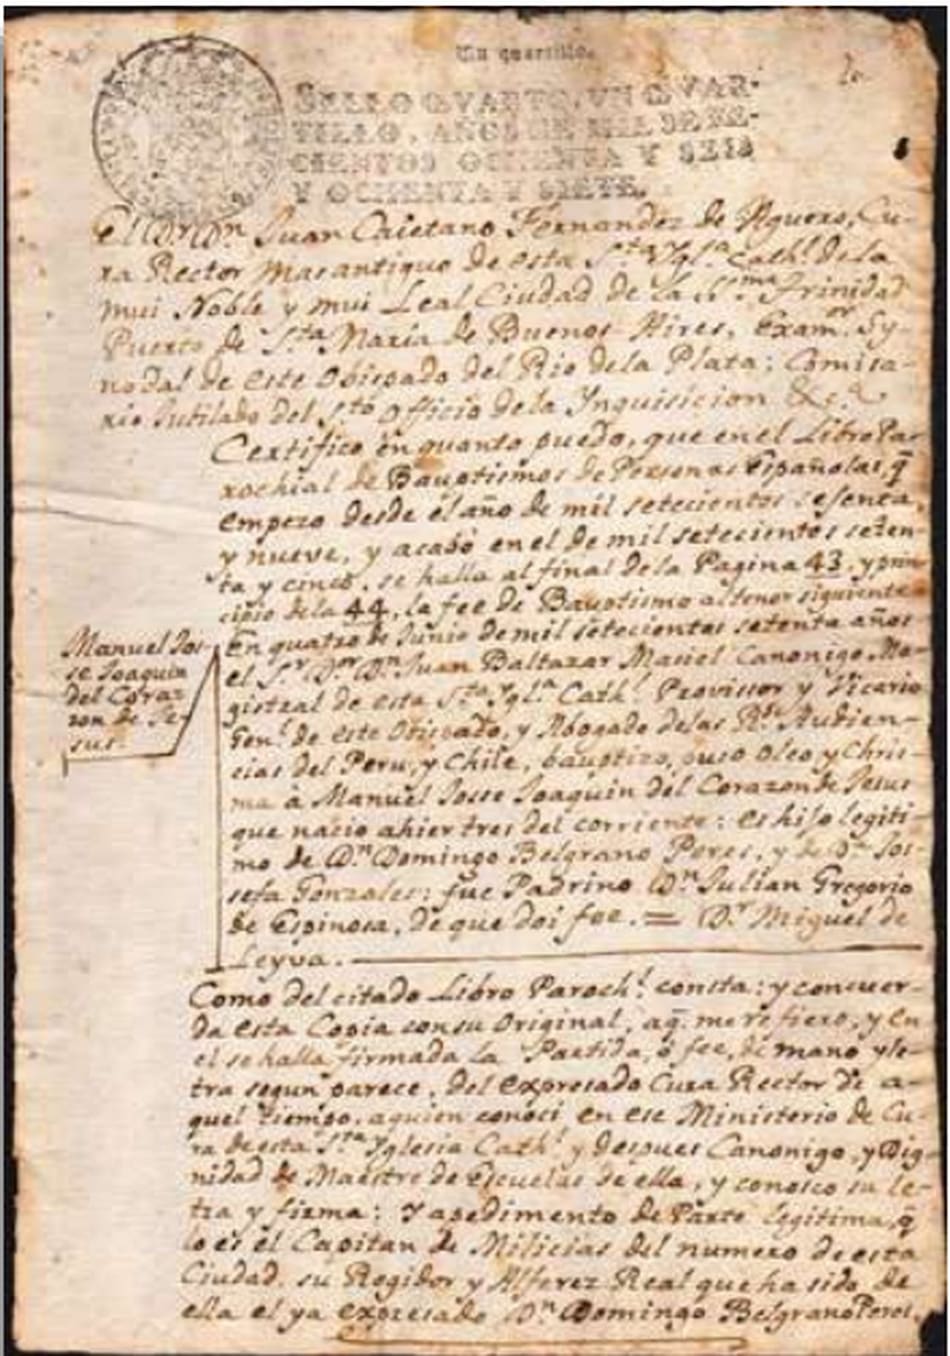 Un quartillo.
SELLO QVARTO, VN QVAR-
TILLO, AÑOS DE MIL SETE-
CIENTOS OCHENTA Y SEIS
Y OCHENTA Y SIETE.
El Dr. Dn. Juan Caietano Fernandez de Aguero, Cu-
ra Rector mas antiguo de esta Sta Yglª Cathl. de la
mui Noble y mui Leal Ciudad de la SSma Trinidad
Puerto de Sta Maria de Buenos Aires, Examor. Sy-
nodal de este Obispado del Rio dela Plata: Comisa-
rio Jubilado del Sto Officio dela Ynquisicion &c.ª
Certifico en quanto puedo, que en el Libro Pa-
rochial de Bauptismos de Personas Españolas, q̃
empezo desde el año de mil setecientos sesenta,
y nueve, y acabó en el de mil setecientos seten-
ta y cinco, se halla al final de la Pagina 43, y prin-
cipio de la 44, la fee de Bauptismo al tenor siguiente
Manuel Jos-
se Joaquin
del Cora-
zon de Je-
sus.
En quatro de Junio de mil setecientos setenta años
el Sr. Dor. Dn. Juan Baltazar Maciel Canonigo Ma-
gistral de esta Sta Yglª Cathl. Provissor y Vicario
Genl. de este Obispado, y Abogado delas Rs. Audien-
cias del Peru, y Chile, bauptizo, puso Oleo y Chris-
ma à Manuel Josse Joaquin del Corazon de Jesus
que nacio ahier tres del corriente: es hijo legiti-
mo de Dn. Domingo Belgrano Peres, y de Dª Jos-
sefa Gonzales: fue Padrino Dn. Julian Gregorio
de Espinosa, de que doi fee. = Dr. Miguel de
Leyva.
Como del citado Libro Paroch.l consta: y concuer-
da esta Copia con su Original, aq̃. me refiero, y en
el se halla firmada la Partida, ó fee, de mano y le-
tra segun parece, del expresado Cura Rector de a-
quel tiempo, aquien conoci en ese Ministerio de Cu-
ra de esta Sta Yglesia Cathl. y despues Canonigo, y Dig-
nidad de Maestre de Escuelas de ella, y conosco su le-
tra y firma: Y apedimento de Parte legitima, q̃
lo es el Capitan de Milicias del numero de esta
Ciudad, su Regidor y Alferez Real que ha sido de
ella el ya expresado Dn. Domingo Belgrano Peres,